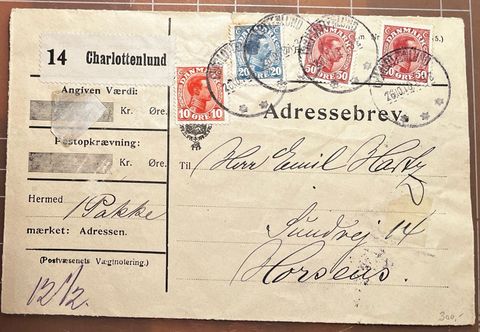 14 Charlottenlund
Angiven Værdi:
Kr. Øre.
Postopkrævning:
Kr. Øre.
Hermed
1 Pakke
mærket: Adressen.
(Postvæsenets Vægtnotering.)
12 1/2.
DANMARK
10 ØRE 10
DANMARK
20 ØRE 20
DANMARK
50 ØRE 50
DANMARK
50 ØRE 50
CHARLOTTENLUND
5.)
Adressebrev
Til
Herr Emil Hartz
Sundvej 14
Horsens.
300,-